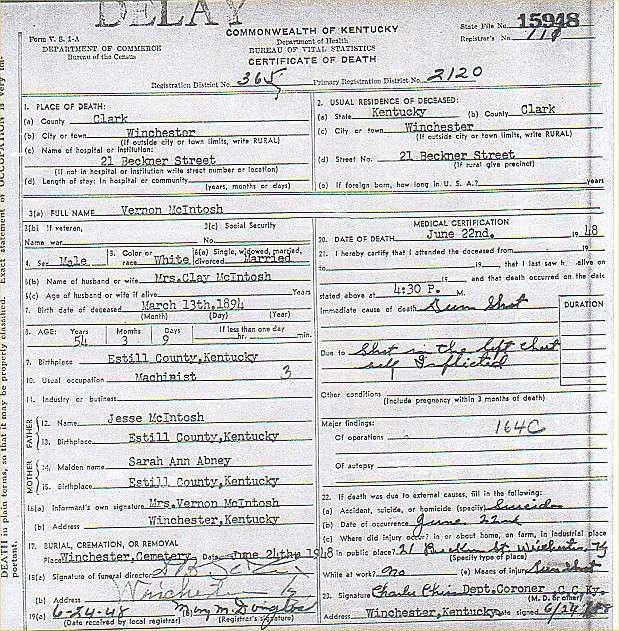 DELAY
COMMONWEALTH OF KENTUCKY
State File No. 15948
Form V. S. 1-A
Department of Health
Registrar's No. 118
DEPARTMENT OF COMMERCE
BUREAU OF VITAL STATISTICS
Bureau of the Census
CERTIFICATE OF DEATH
Registration District No. 365 Primary Registration District No. 2120
1. PLACE OF DEATH:
(a) County Clark
(b) City or town Winchester
(If outside city or town limits, write RURAL)
(c) Name of hospital or institution:
21 Beckner Street
(If not in hospital or institution write street number or location)
(d) Length of stay: In hospital or community
(years, months or days)
2. USUAL RESIDENCE OF DECEASED:
(a) State Kentucky (b) County Clark
(c) City or town Winchester
(If outside city or town limits, write RURAL)
(d) Street No. 21 Beckner Street
(If rural give precinct)
(e) If foreign born, how long in U. S. A.? years
3(a) FULL NAME Vernon McIntosh
3(b) If veteran, 3(c) Social Security
Name war No.
4. Sex Male 5. Color or race White 6(a) Single, widowed, married, divorced Married
6(b) Name of husband or wife Mrs.Clay McIntosh
6(c) Age of husband or wife if alive Years
7. Birth date of deceased March 13th,1894
(Month) (Day) (Year)
8. AGE: Years Months Days If less than one day
54 3 9 hr. min.
9. Birthplace Estill County,Kentucky
10. Usual occupation Machinist 3
11. Industry or business
FATHER
12. Name Jesse McIntosh
13. Birthplace Estill County,Kentucky
MOTHER
14. Maiden name Sarah Ann Abney
15. Birthplace Estill County,Kentucky
16(a) Informant's own signature Mrs.Vernon McIntosh
(b) Address Winchester,Kentucky
17. BURIAL, CREMATION, OR REMOVAL
Place Winchester,Cemetery Date June 24th, 1948
18(a) Signature of funeral director
(b) Address Winchester Ky
19(a) 6-24-48 Mary M. Douglas
(Date received by local registrar) (Registrar's signature)
MEDICAL CERTIFICATION
20. DATE OF DEATH June 22nd. 1948
21. I hereby certify that I attended the deceased from 19
to 19 , that I last saw h alive on
19 and that death occurred on the date
stated above at 4:30 P. M.
Immediate cause of death Gun Shot
DURATION
Due to Shot in the left chest
self Inflicted
Other conditions
(Include pregnancy within 3 months of death)
Major findings:
Of operations 164C
Of autopsy
22. If death was due to external causes, fill in the following:
(a) Accident, suicide, or homicide (specify) Suicide
(b) Date of occurrence June 22nd
(c) Where did injury occur? in or about home, on farm, in industrial place
in public place? 21 Beckner St Winchester, Ky
(Specify type of place)
While at work? No (e) Means of injury Gun Shot
23. Signature Charles Dept.Coroner C.C.Ky.
(M.D. or other)
Address Winchester,Kentucky Date signed 6/24
DEATH in plain terms, so that it may be properly classified. Exact statement of OCCUPATION is very im-
portant.